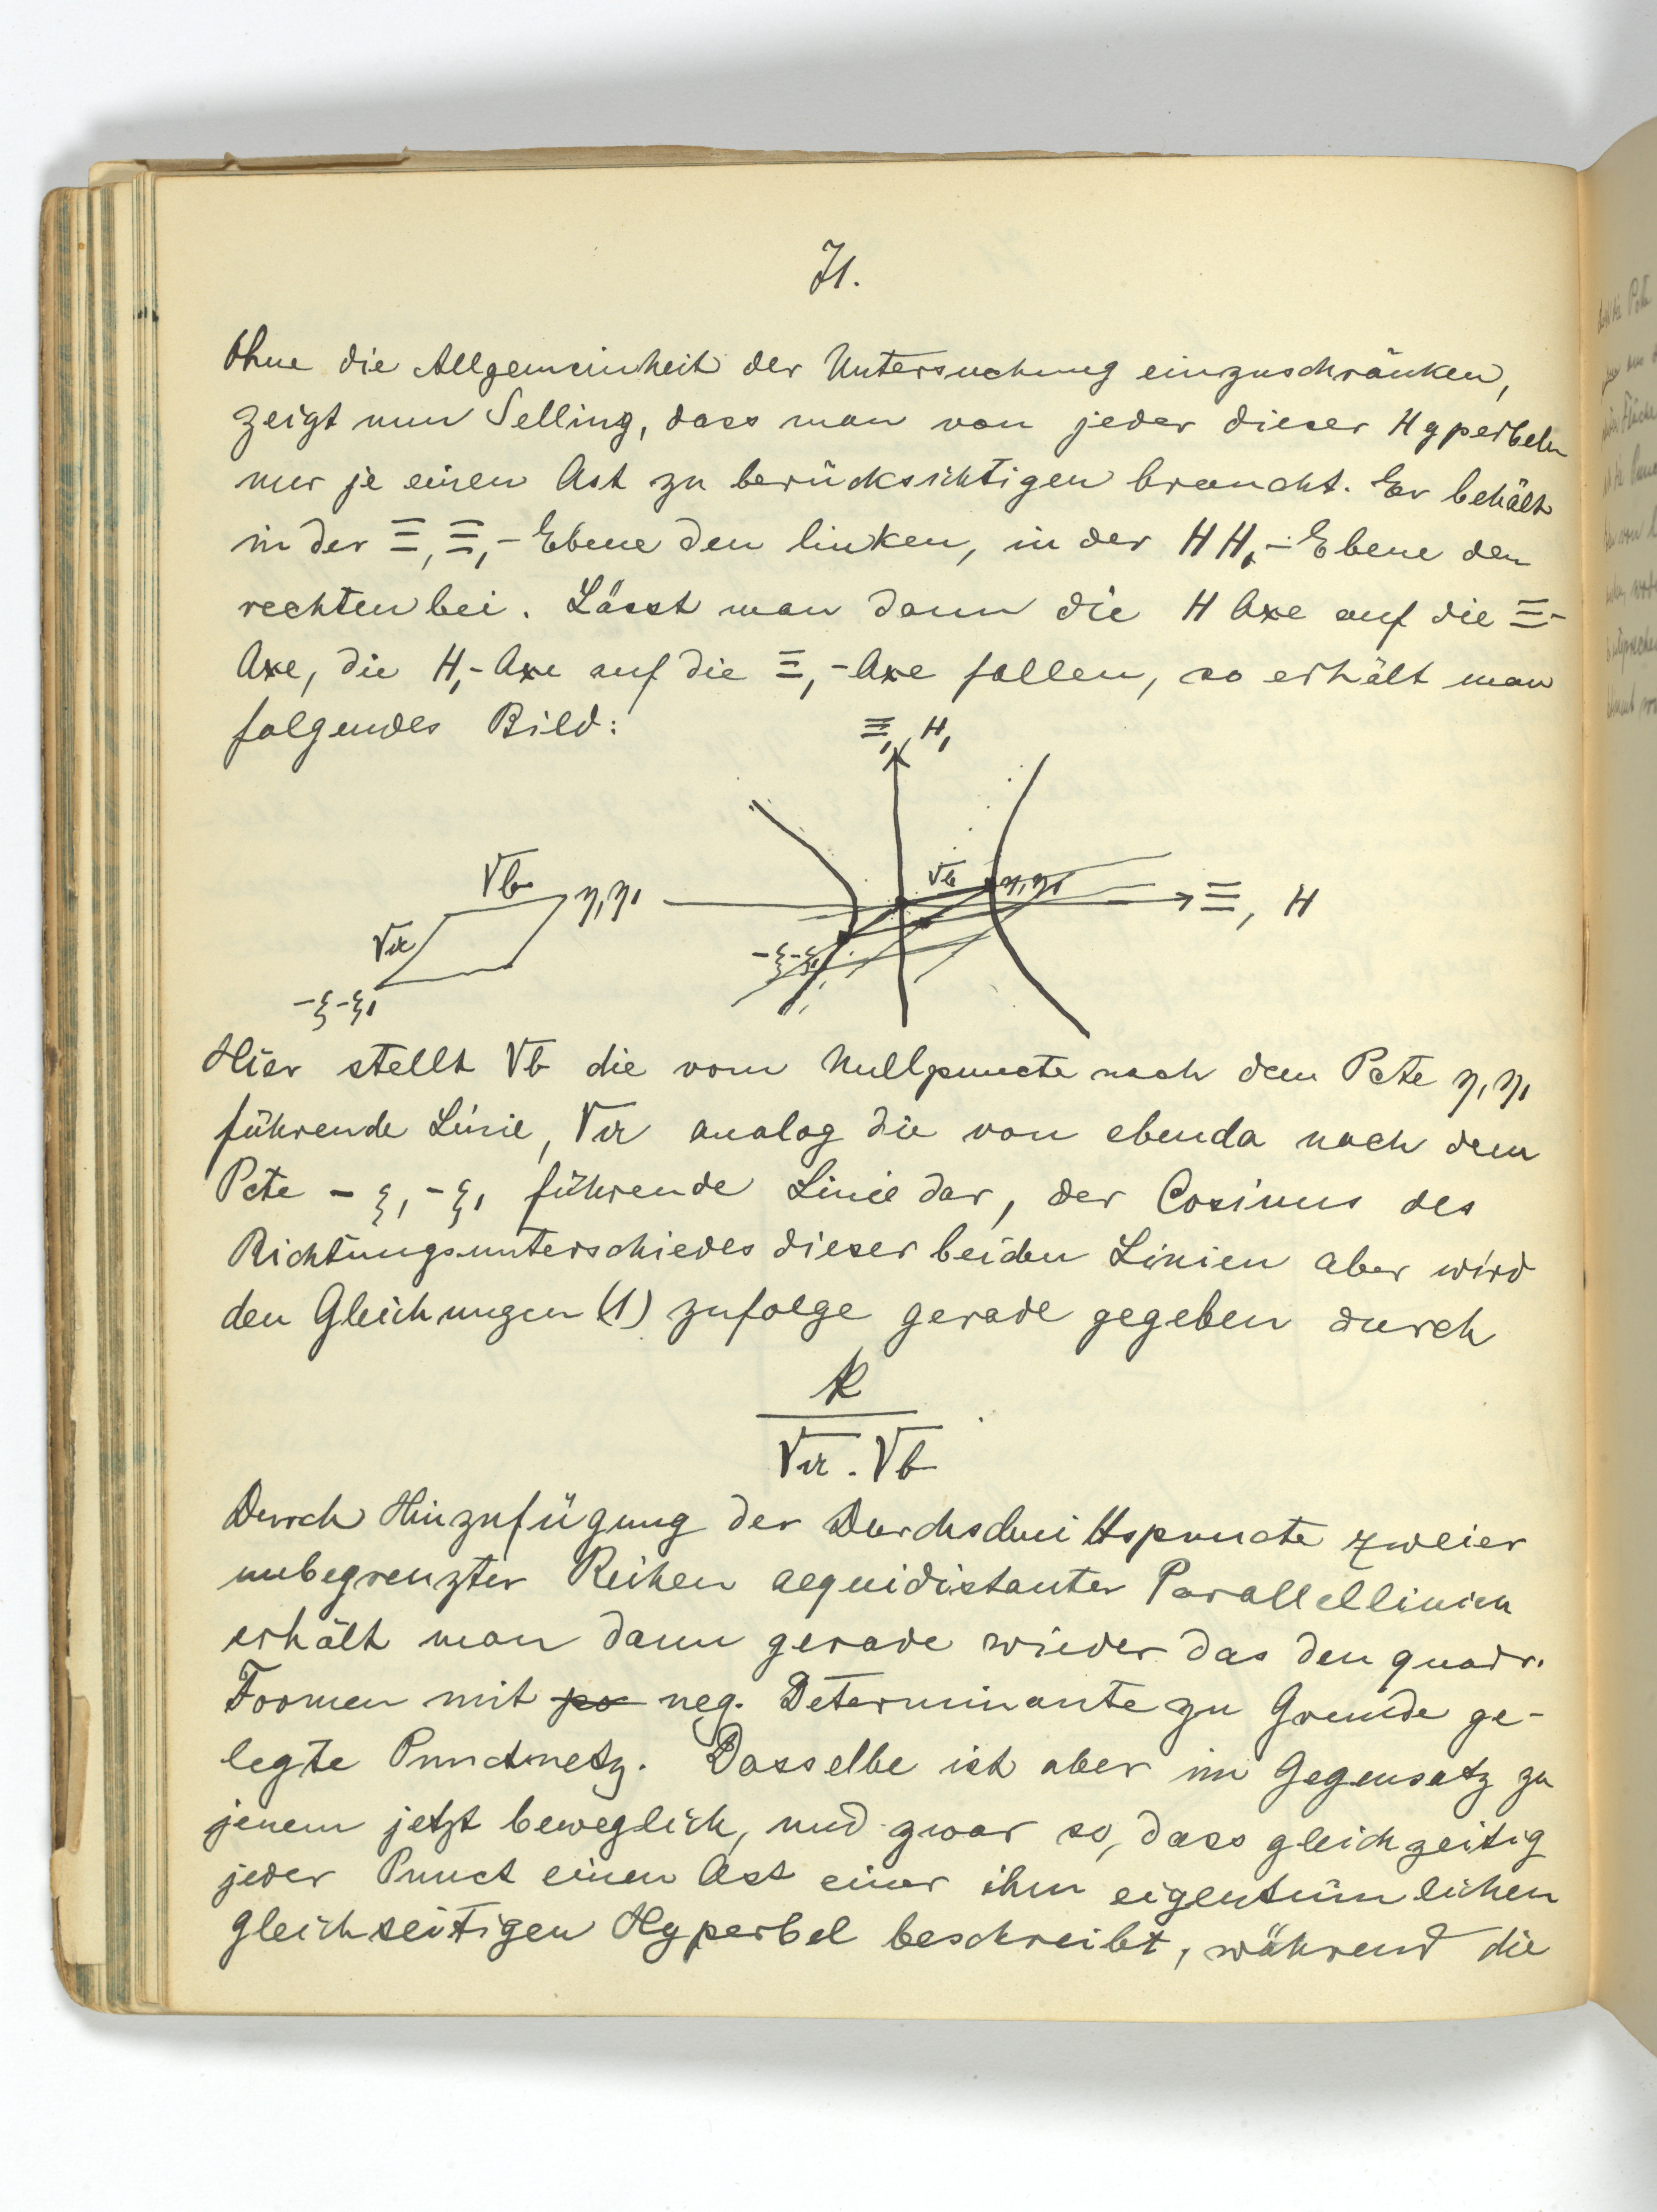 71.
Ohne die Allgemeinheit der Untersuchung einzuschränken,
zeigt nun Selling, dass man von jeder dieser Hyperbeln
nur je einen Ast zu berücksichtigen braucht. Er behält
in der Ξ, Ξ₁-Ebene den linken, in der H H₁-Ebene den
rechten bei. Lässt man dann die H Axe auf die Ξ-
Axe, die H₁-Axe auf die Ξ₁-Axe fallen, so erhält man
folgendes Bild:
Ξ₁, H₁
√b
η, η₁
√a
-ξ-ξ₁
√b
η, η₁
-ξ-ξ₁
Ξ, H
Hier stellt √b die vom Nullpuncte nach dem Pcte η, η₁
führende Linie, √a analog die von ebenda nach dem
Pcte -ξ, -ξ₁ führende Linie dar, der Cosinus des
Richtungsunterschiedes dieser beiden Linien aber wird
den Gleichungen (1) zufolge gerade gegeben durch
k
√a . √b
Durch Hinzufügung der Durchschnittspuncte zweier
unbegrenzter Reihen aequidistanter Parallellinien
erhält man dann gerade wieder das den quadr.
Formen mit po neg. Determinante zu Grunde ge-
legte Punctnetz. Dasselbe ist aber im Gegensatz zu
jenem jetzt beweglich, und zwar so, dass gleichzeitig
jeder Punct einen Ast einer ihm eigentümlichen
gleichseitigen Hyperbel beschreibt, während die